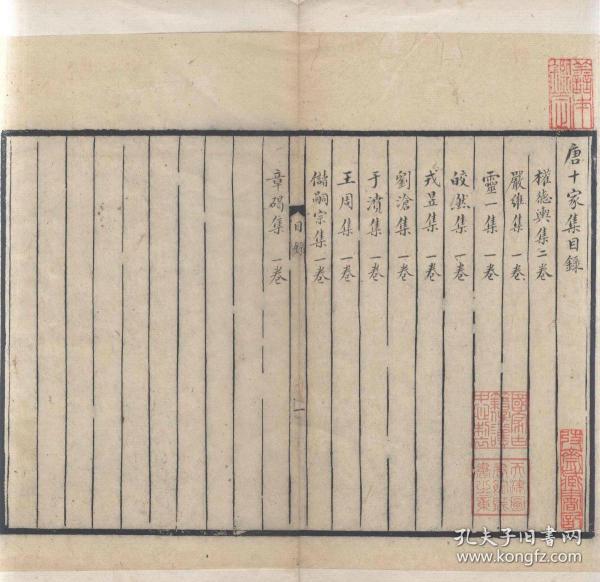 唐十家集目錄
權德輿集二卷
嚴維集一卷
靈一集一卷
皎然集一卷
戎昱集一卷
劉滄集一卷
于濆集一卷
王周集一卷
儲嗣宗集一卷
目錄
一
章碣集一卷
孔夫子旧书网
www.kongfz.com